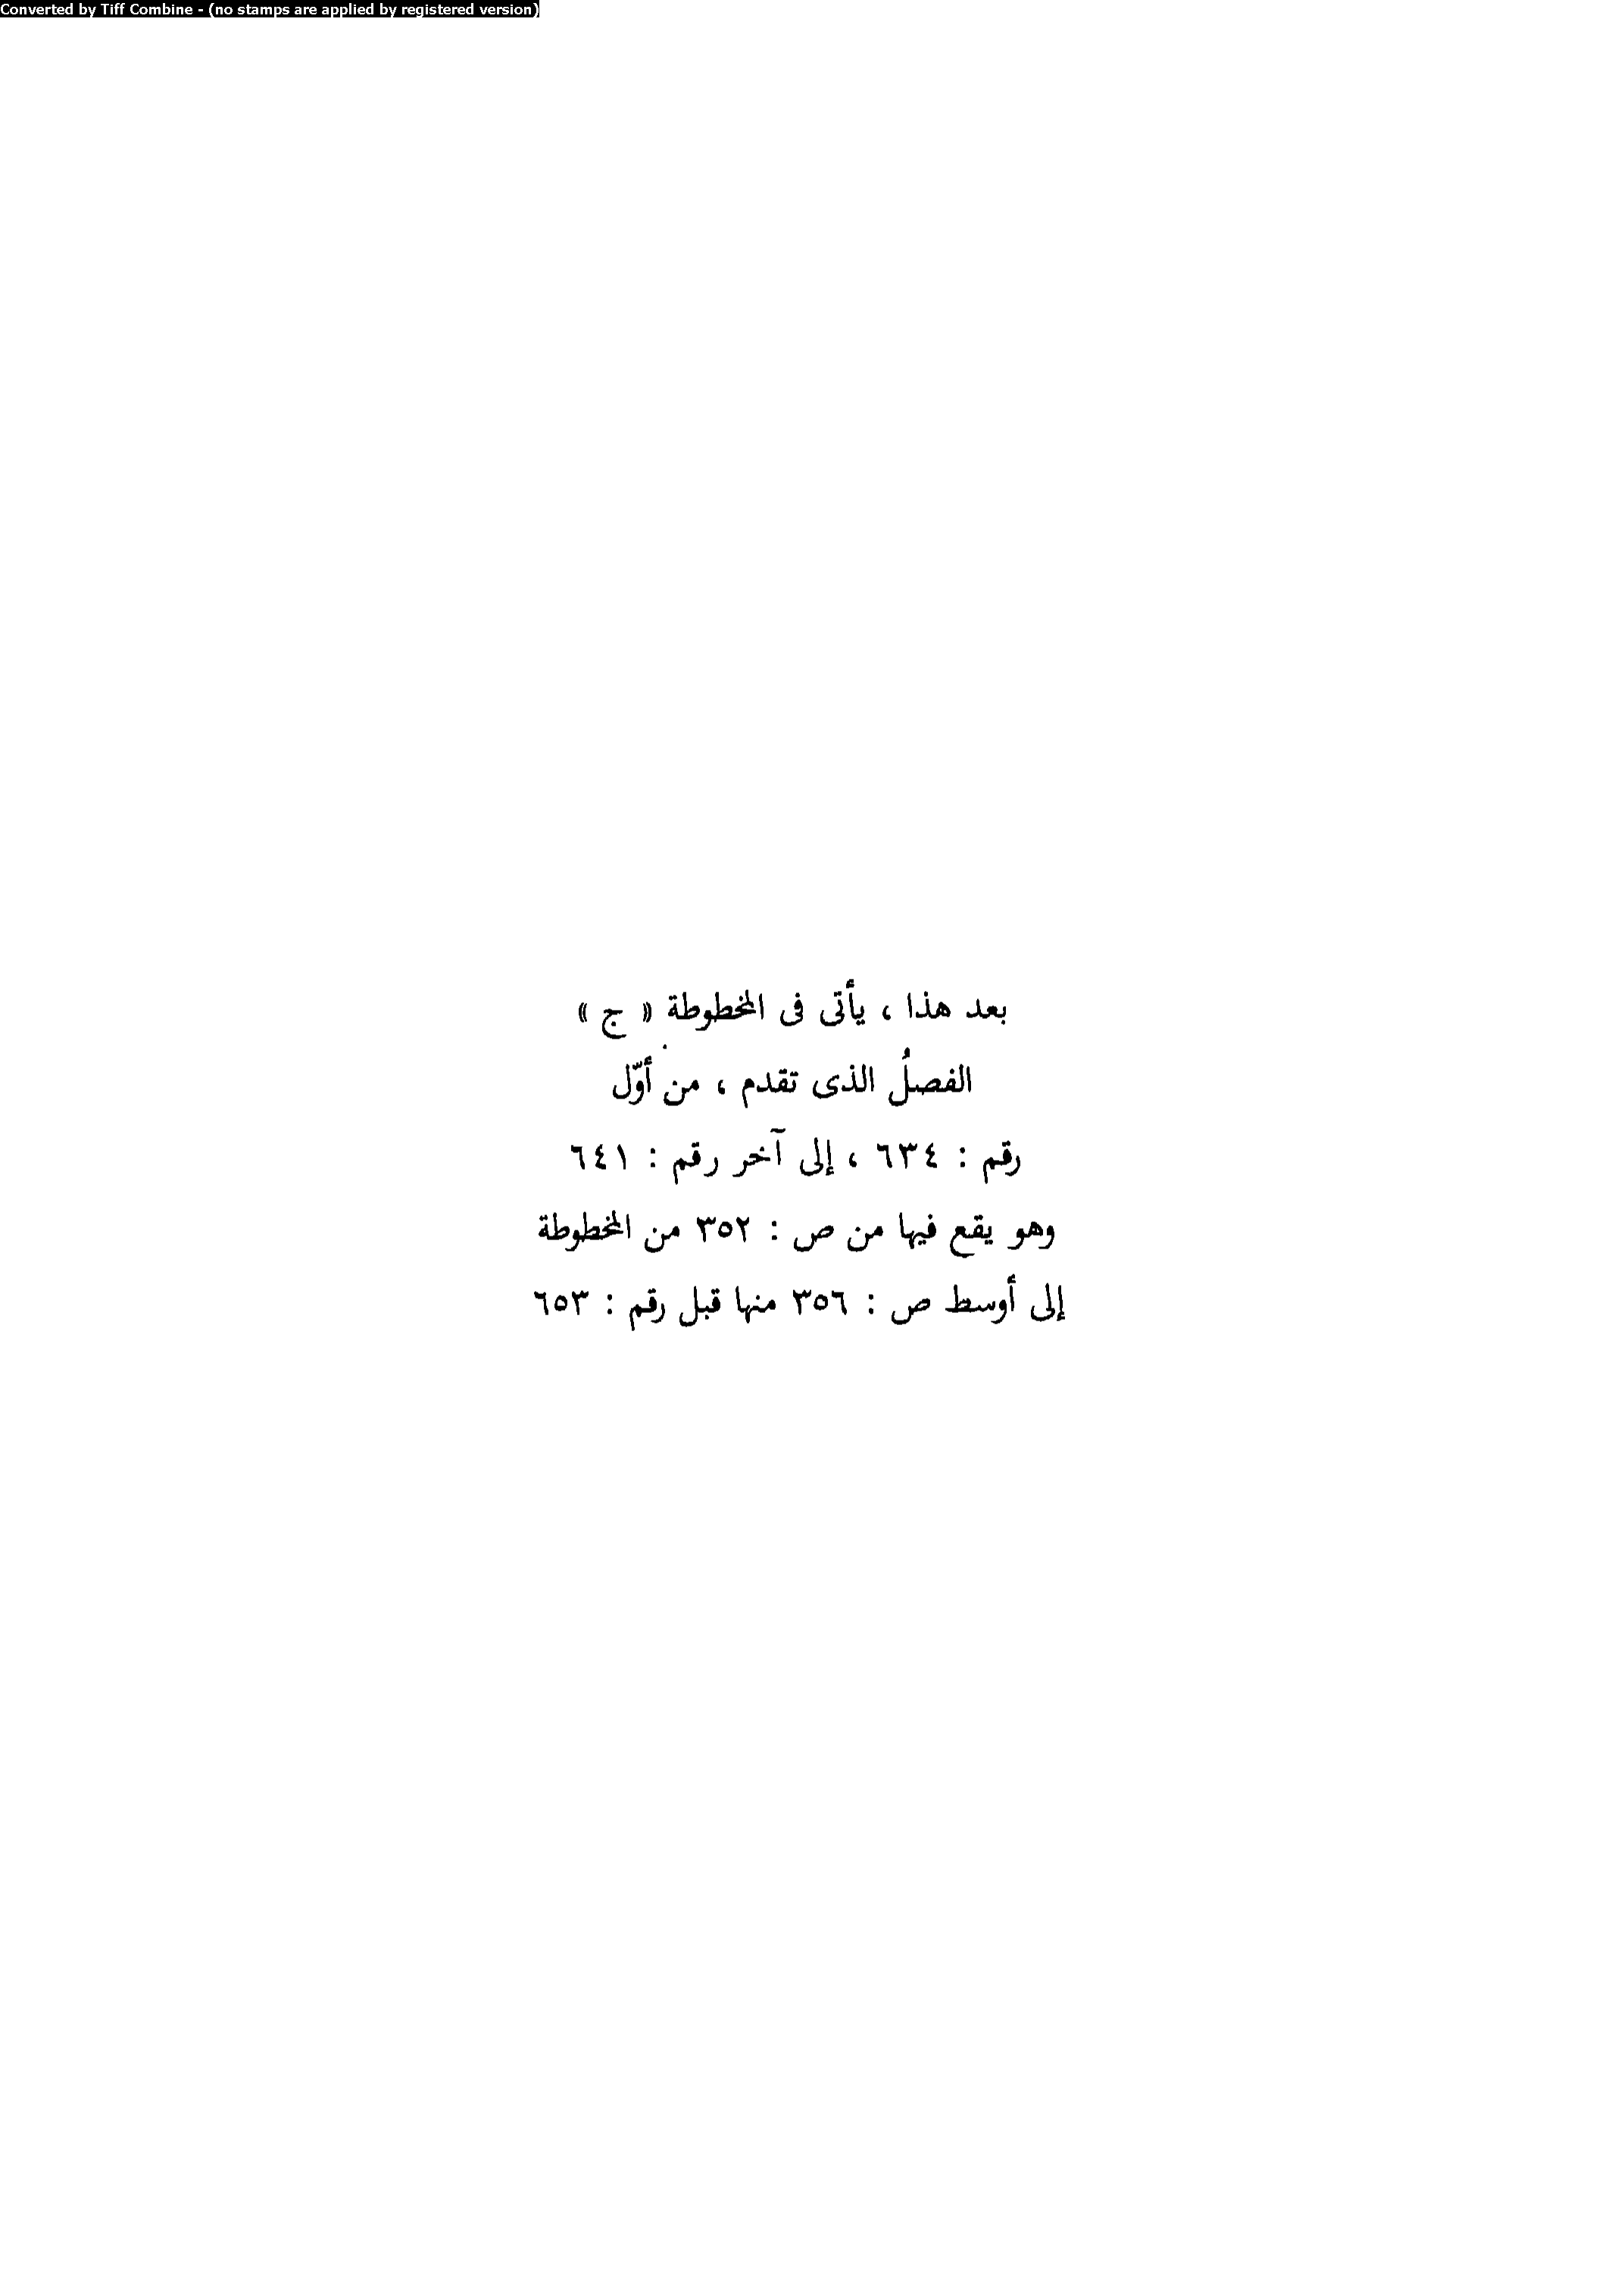 Converted by Tiff Combine - (no stamps are applied by registered version)
بعد هذا ، يأتى فى المخطوطة « ج »
الفصلُ الذى تقدم ، من أوّل
رقم : ٦٣٤ ، إلى آخر رقم : ٦٤١
وهو يقع فيها من ص : ٣٥٢ من المخطوطة
إلى أوسط ص : ٣٥٦ منها قبل رقم : ٦٥٣